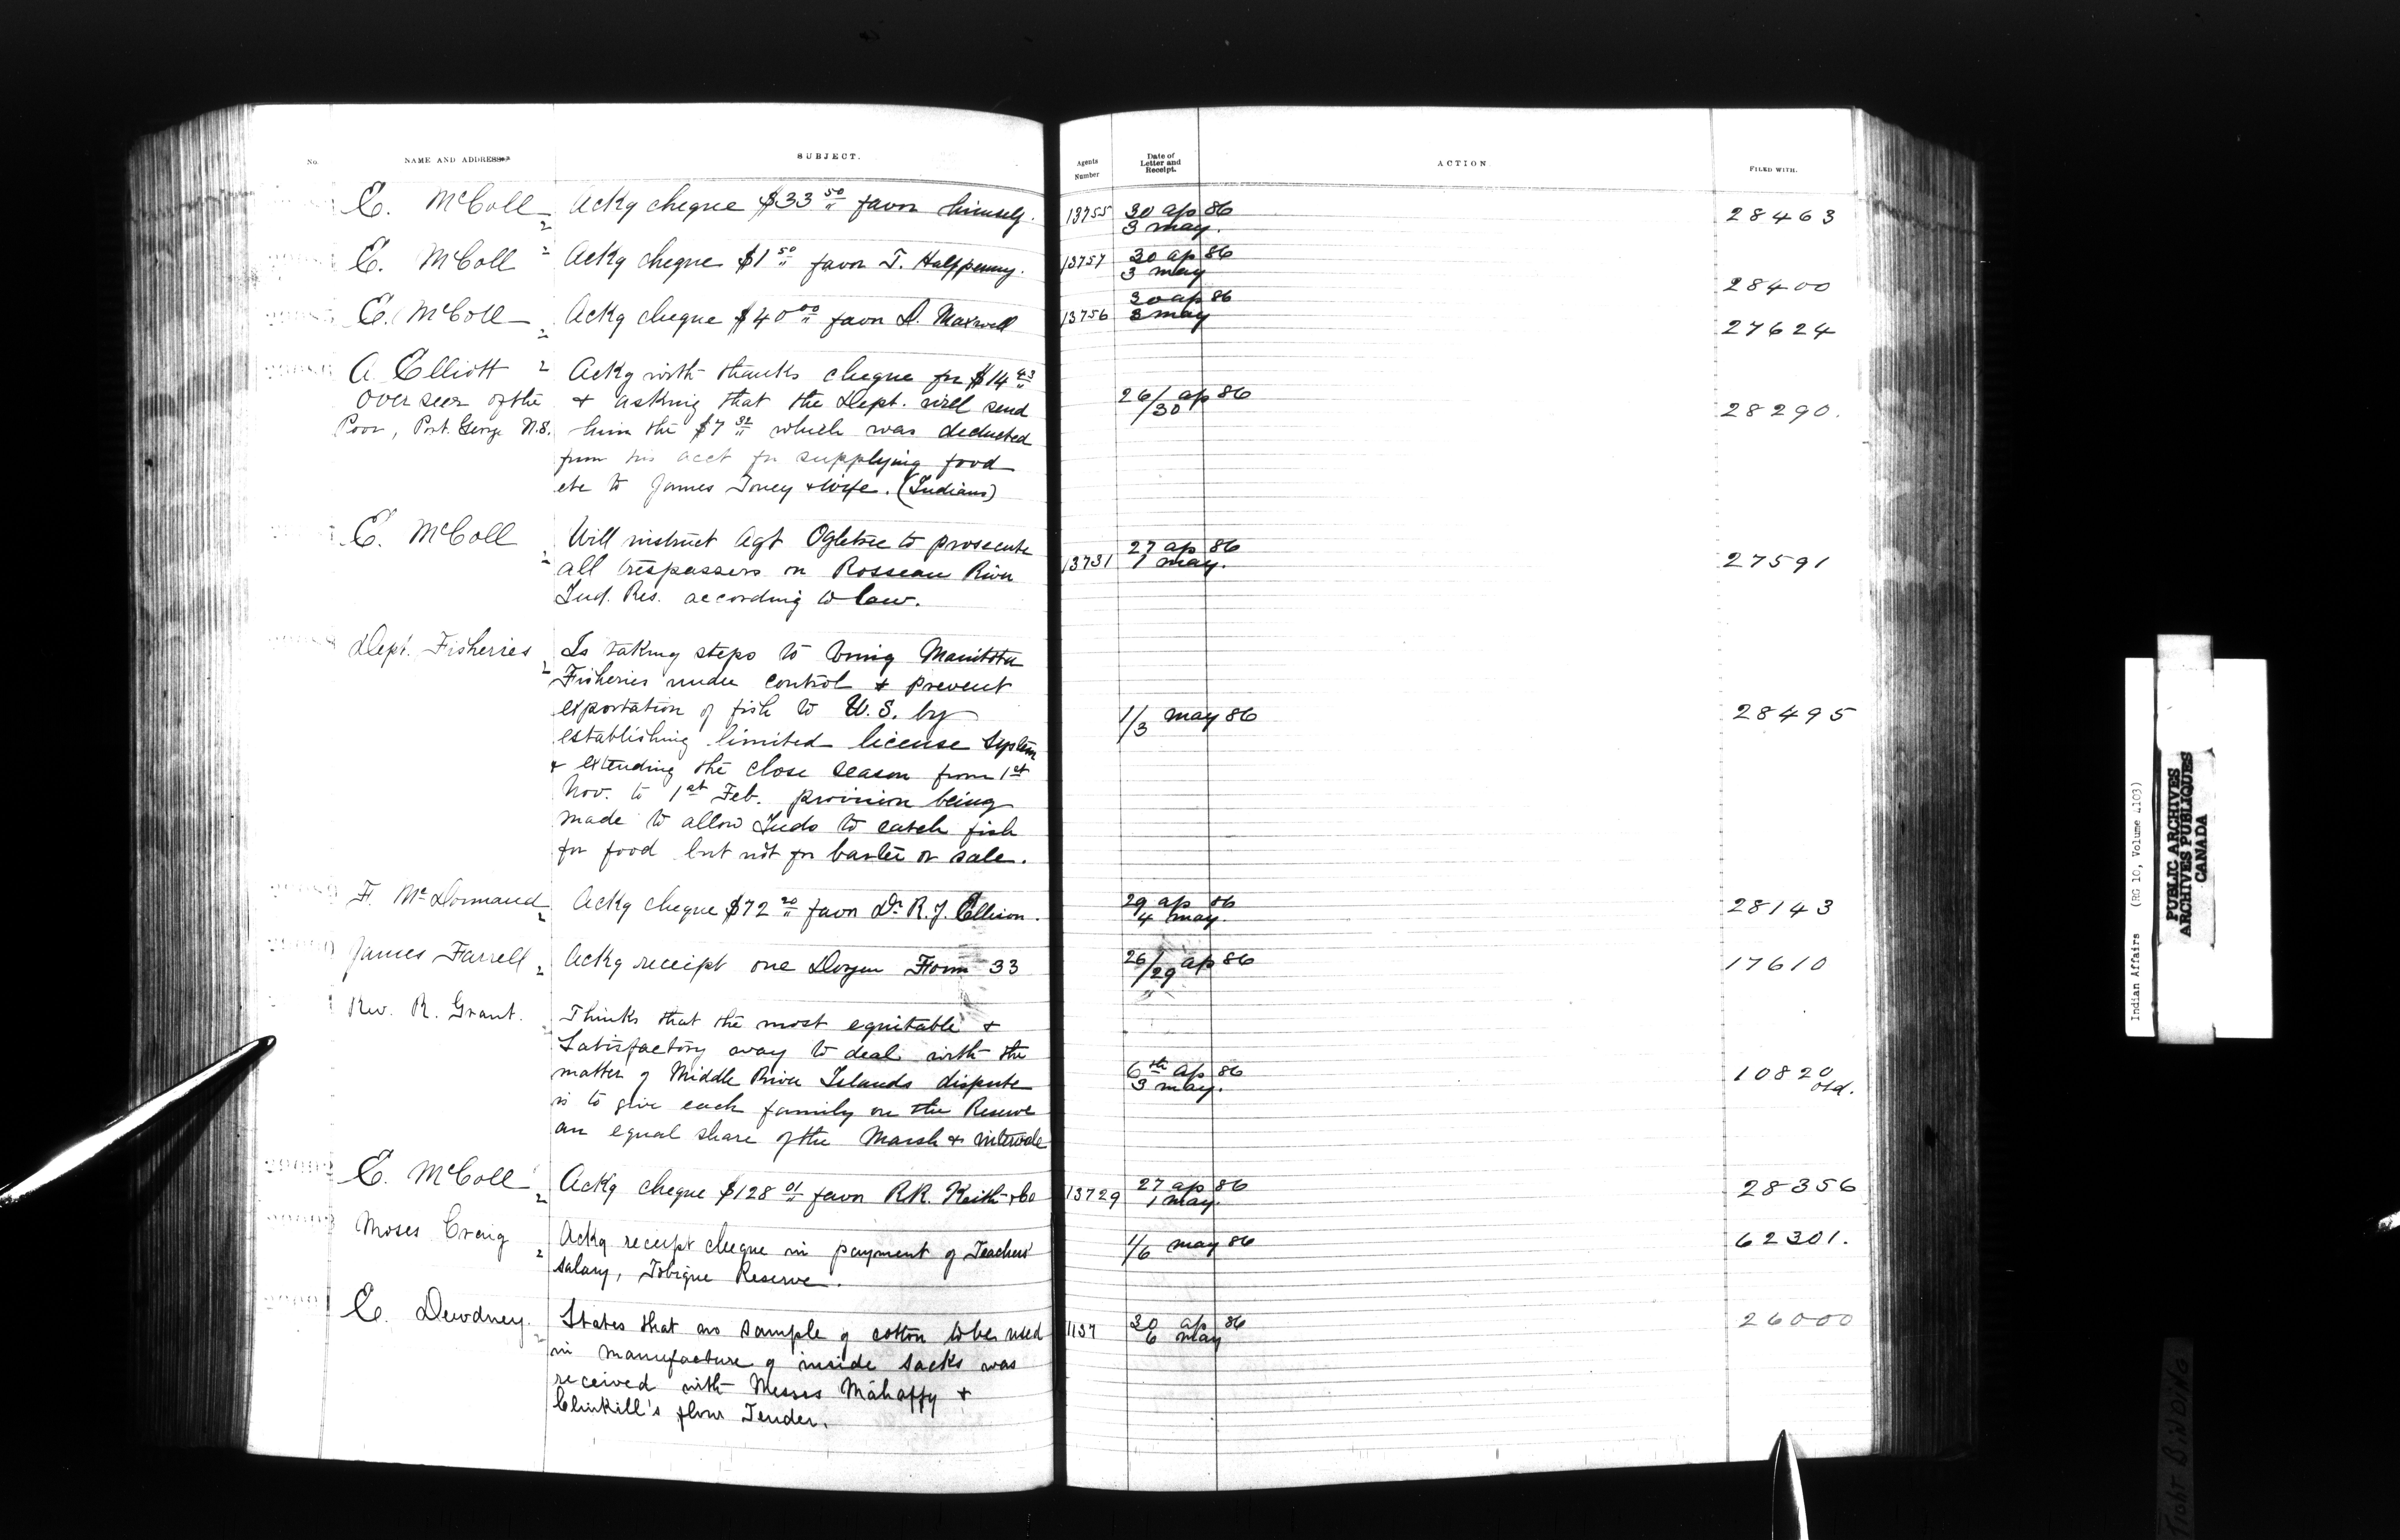 No. NAME AND ADDRESS SUBJECT. Agents Number Date of Letter and Receipt. ACTION FILED WITH.
E. McColl Ackg cheque $33 50 favor himself. 13755 30 ap 86 28463
3 may.
E. McColl Ackg cheque $1 50 favor T. Halfpenny. 13757 30 ap 86
3 may 28400
E. McColl Ackg cheque $40 00 favor D. Maxwell 13756 30 ap 86
3 may 27624
A. Elliott Ackg with thanks cheque for $14 43
Overseer of the & asking that the Dept. will send 26/30 ap 86 28290.
Poor, Port George N.S. him the $7 32 which was deducted
from his acct for supplying food
etc to James Toney & wife. (Indians)
E. McColl Will instruct Agt Ogletree to prosecute 27 ap 86
all trespassers on Rosseau River 13731 1 may. 27591
Ind. Res. according to law.
Dept. Fisheries Is taking steps to bring Manitoba
Fisheries under control & prevent
exportation of fish to U.S. by 1/3 may 86 28495
establishing limited license System
& extending the close season from 1st
Nov. to 1st Feb. provision being
made to allow Inds to catch fish
for food but not for barter or sale.
F. McDormand Ackg cheque $72 20 favor Dr R. J. Ellison. 29 ap 86 28143
4 may.
James Farrell Ackg receipt one Dozen Form 33 26/29 ap 86 17610
Rev. R. Grant. Thinks that the most equitable &
Satisfactory way to deal with the
matter of Middle River Islands dispute 6th ap 86 10820
3 may. old.
is to give each family on the Reserve
an equal share of the Marsh & intervale
E. McColl Ackg cheque $128 01 favor R.R. Keith & Co 13729 27 ap 86 28356
1 may.
Moses Craig Ackg receipt cheque in payment of Teachers' 1/6 may 86 62301.
salary, Tobique Reserve.
E. Dewdney. States that no sample of cotton to be used 1137 30 ap 86 26000
6 may
in manufacture of inside sacks was
received with Messrs Mahaffy &
Clinkill's flour Tender.
Indian Affairs (RG 10, Volume 4103)
PUBLIC ARCHIVES
ARCHIVES PUBLIQUES
CANADA
TIGHT BINDING